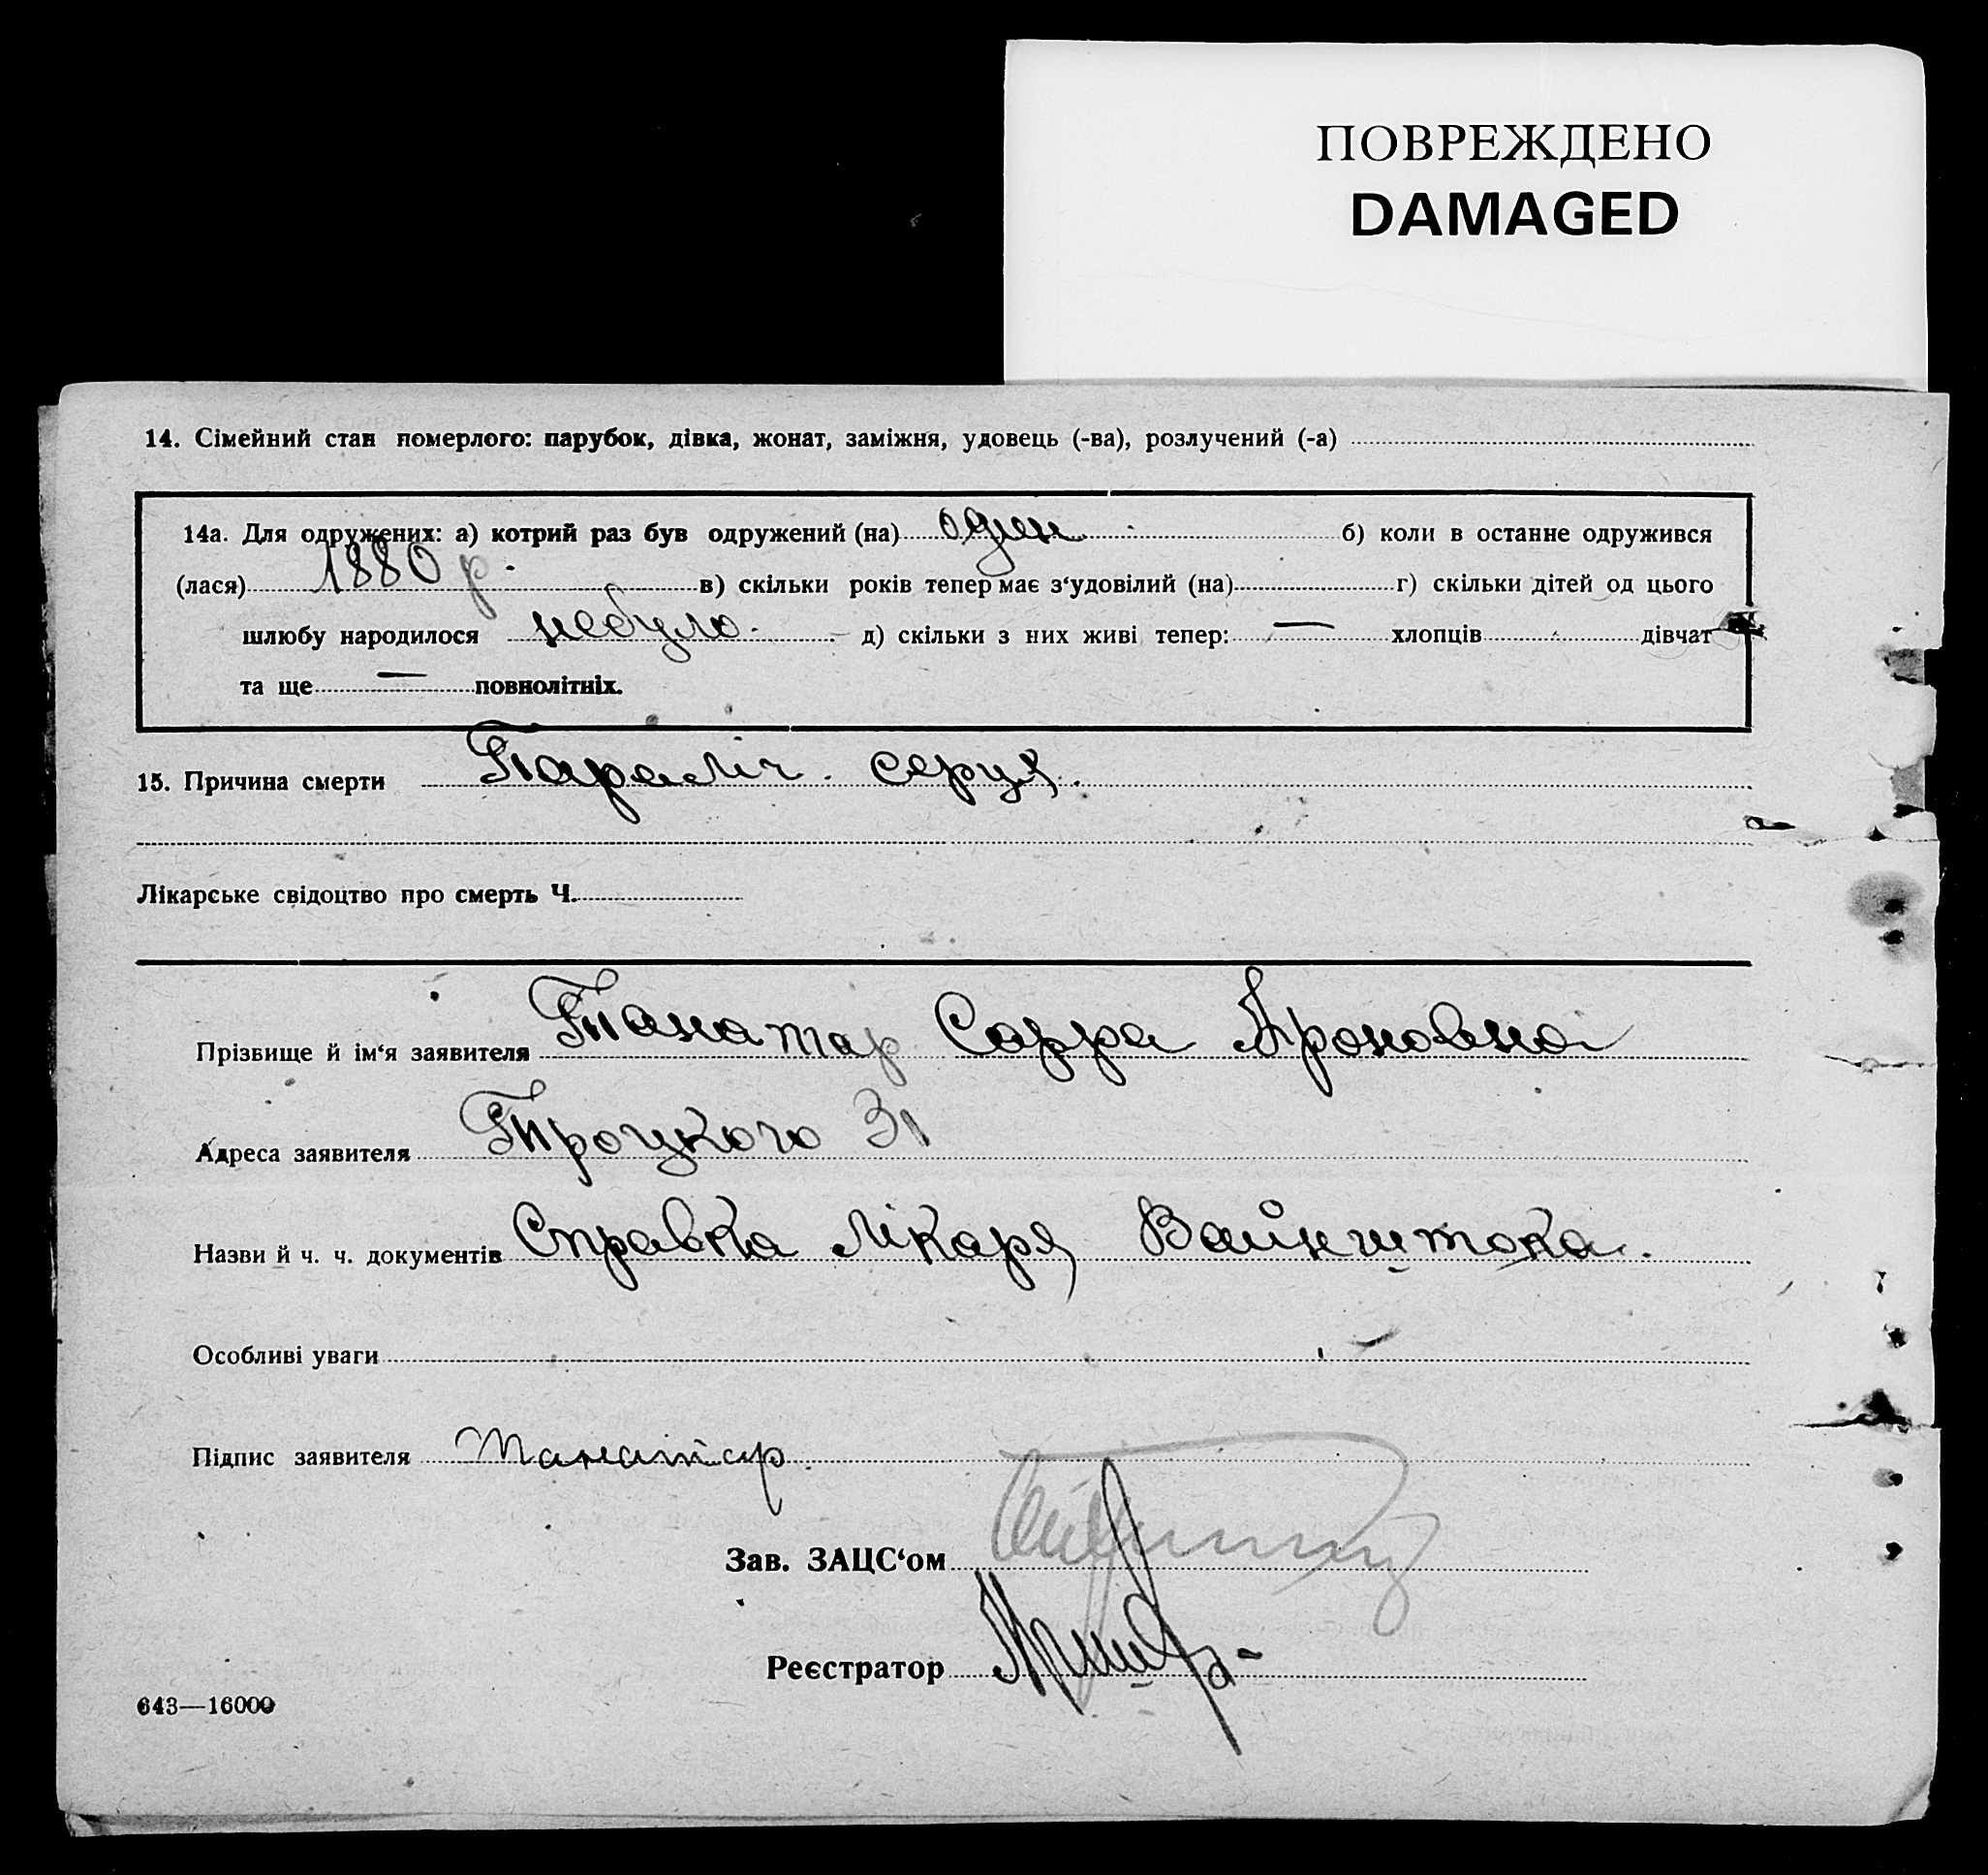 ПОВРЕЖДЕНО
DAMAGED
14. Сімейний стан померлого: парубок, дівка, жонат, заміжня, удовець (-ва), розлучений (-а)
14а. Для одружених: а) котрий раз був одружений (на) один б) коли в останне одружився
(лася) 1880 р. в) скільки років тепер має з‘удовілий (на) г) скільки дітей од цього
шлюбу народилося небуло. д) скільки з них живі тепер: — хлопців дівчат
та ще — повнолітніх.
15. Причина смерти Параліч серця.
Лікарське свідоцтво про смерть Ч.
Прізвище й ім‘я заявителя Танатар Сарра Ароновна
Адреса заявителя Троцкого 31
Назви й ч. ч. документів Справка лікаря Вайнштока.
Особливі уваги
Підпис заявителя Танатар
Зав. ЗАЦС‘ом
Реєстратор
643—16000